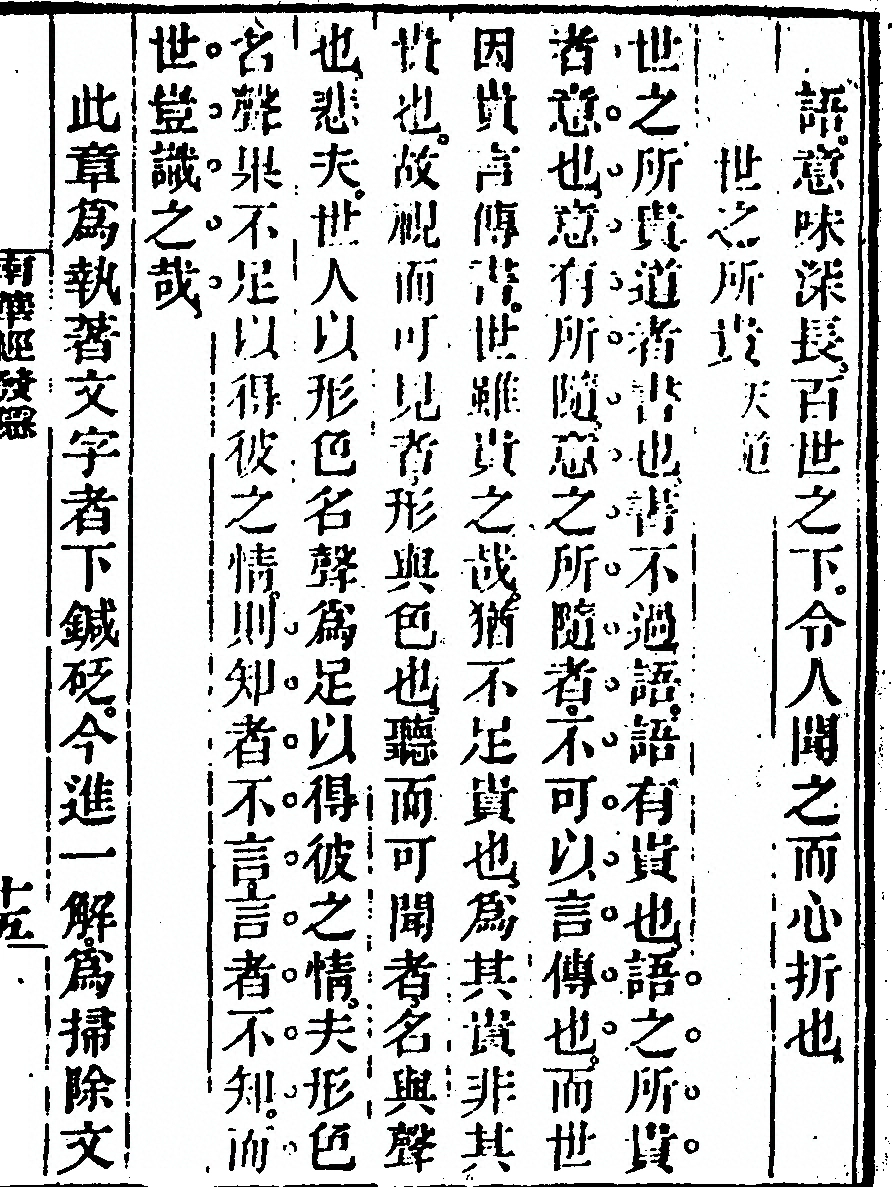 語意味深長百世之下令人聞之而心折也
世之所貴 天道
世之所貴道者書也書不過語語有貴也語之所貴
者意也意有所隨意之所隨者不可以言傳也而世
因貴言傳書世雖貴之哉猶不足貴也爲其貴非其
貴也故視而可見者形與色也聽而可聞者名與聲
也悲夫世人以形色名聲爲足以得彼之情夫形色
名聲果不足以得彼之情則知者不言言者不知而
世豈識之哉
此章爲執著文字者下鍼砭今進一解爲掃除文
南華經發隱
十五